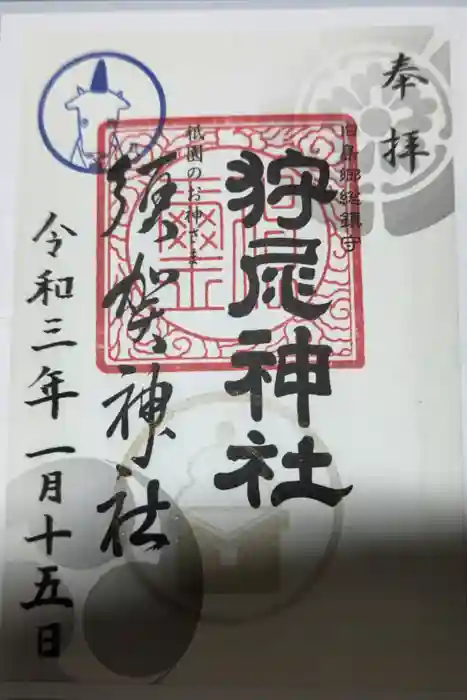 奉拝
臼杵郷総鎮守
狩尾神社
祇園のお神さま
須賀神社
令和三年一月十五日